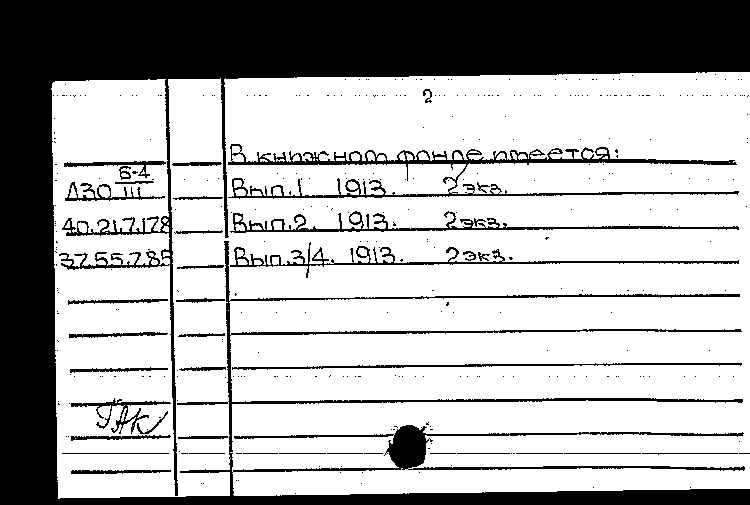 2
В книжном фонде имеется:
Л30 Б-4/III Вып.1 1913. 2экз.
40.21.7.178 Вып.2. 1913. 2экз.
37.55.7.85 Вып.3/4. 1913. 2экз.
ГАК